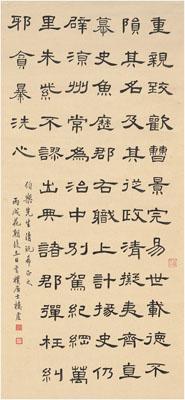 重親致歡曹景完易世載德不
隕其名及其從政清擬夷齊直
慕史魚歷郡右職上計掾史仍
辟涼州常為治中別駕紀綱萬
里朱紫不謬出典諸郡彈枉糾
邪貪暴洗心
伯樂先生清玩希正之
丙戌花朝後五日